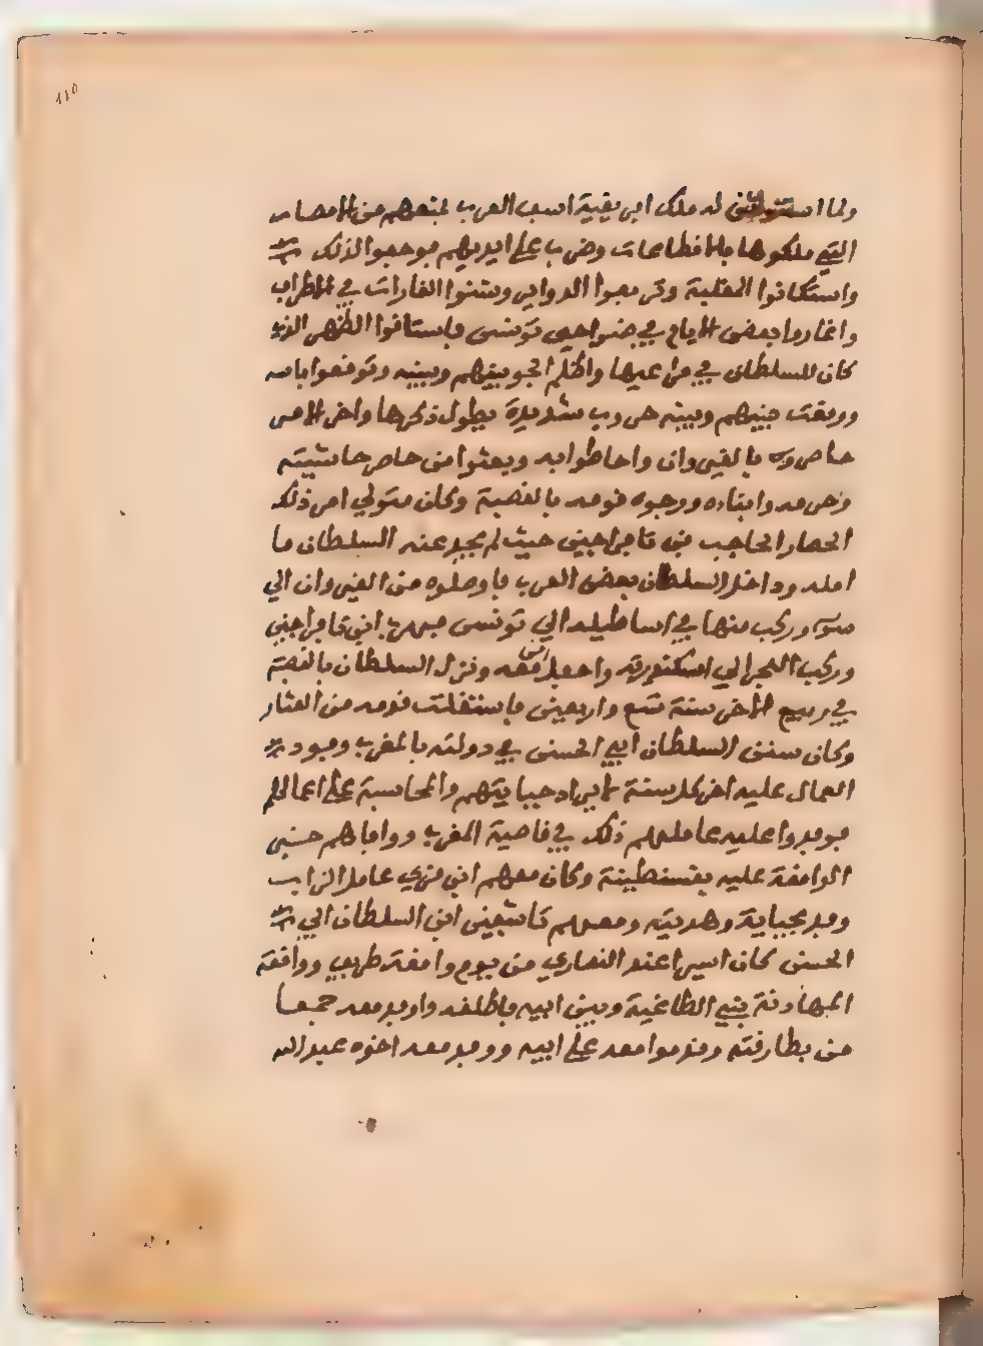 ١١٥
ولما استوثق له ملك افريقية اسف العرب لمنعهم من الامصار
التي ملكوها بالاقطاعات وضرب على ايديهم فوجموا لذلك
واستكانوا لغلبة وتربصوا الدواير وشنوا الغارات في الاطراف
واغاروا بعض الايام في ضواحي تونس فاستاقوا الظهر الذي
كان للسلطان في مراعيها واظلم الجو بينهم وبينه وتوقعوا باسه
ووقعت بينهم وبينه حروب شديدة يطول ذكرها واخر الامر
حاصروه بالقيروان واحاطوا به وبعثوا من حاصر حاشيته
وحرمه وابناءه ووجوه قومه بالقصبة وكان متولي امر ذلك
الحصار الحاجب بن تافراجين حيث لم يجد عند السلطان ما
امله وداخل السلطان بعض العرب فاوصلوه من القيروان الي
سوسة وركب منها في اساطيله الي تونس فهرب ابن تافراجين
وركب البحر الي اسكندرية ونزل السلطان بالقصبة
في ربيع الاخر سنة تسع واربعين فاستنقلت قومه من العثار
وكان سنن السلطان ابي الحسن في دولته بالمغرب وفود
العمال عليه اخر كل سنة لايراد جبايتهم والمحاسبة على اعمالهم
فوفدوا عليه عاملهم ذلك في قاصية المغرب ووافاهم خبر
الواقعة عليه بقسنطينة وكان معهم ابن مزني عامل الزاب
وفد بجباية وهديته ومعهم تاشفين ابن السلطان ابي
الحسن كان اسيرا عند النصاري من يوم واقعة طريف ووافقة
المهادنة بين الطاغية وبين ابيه فاطلقه واوفد معه جمعا
من بطارقته وقدموا معه على ابيه ووفد معه اخوه عبد الله